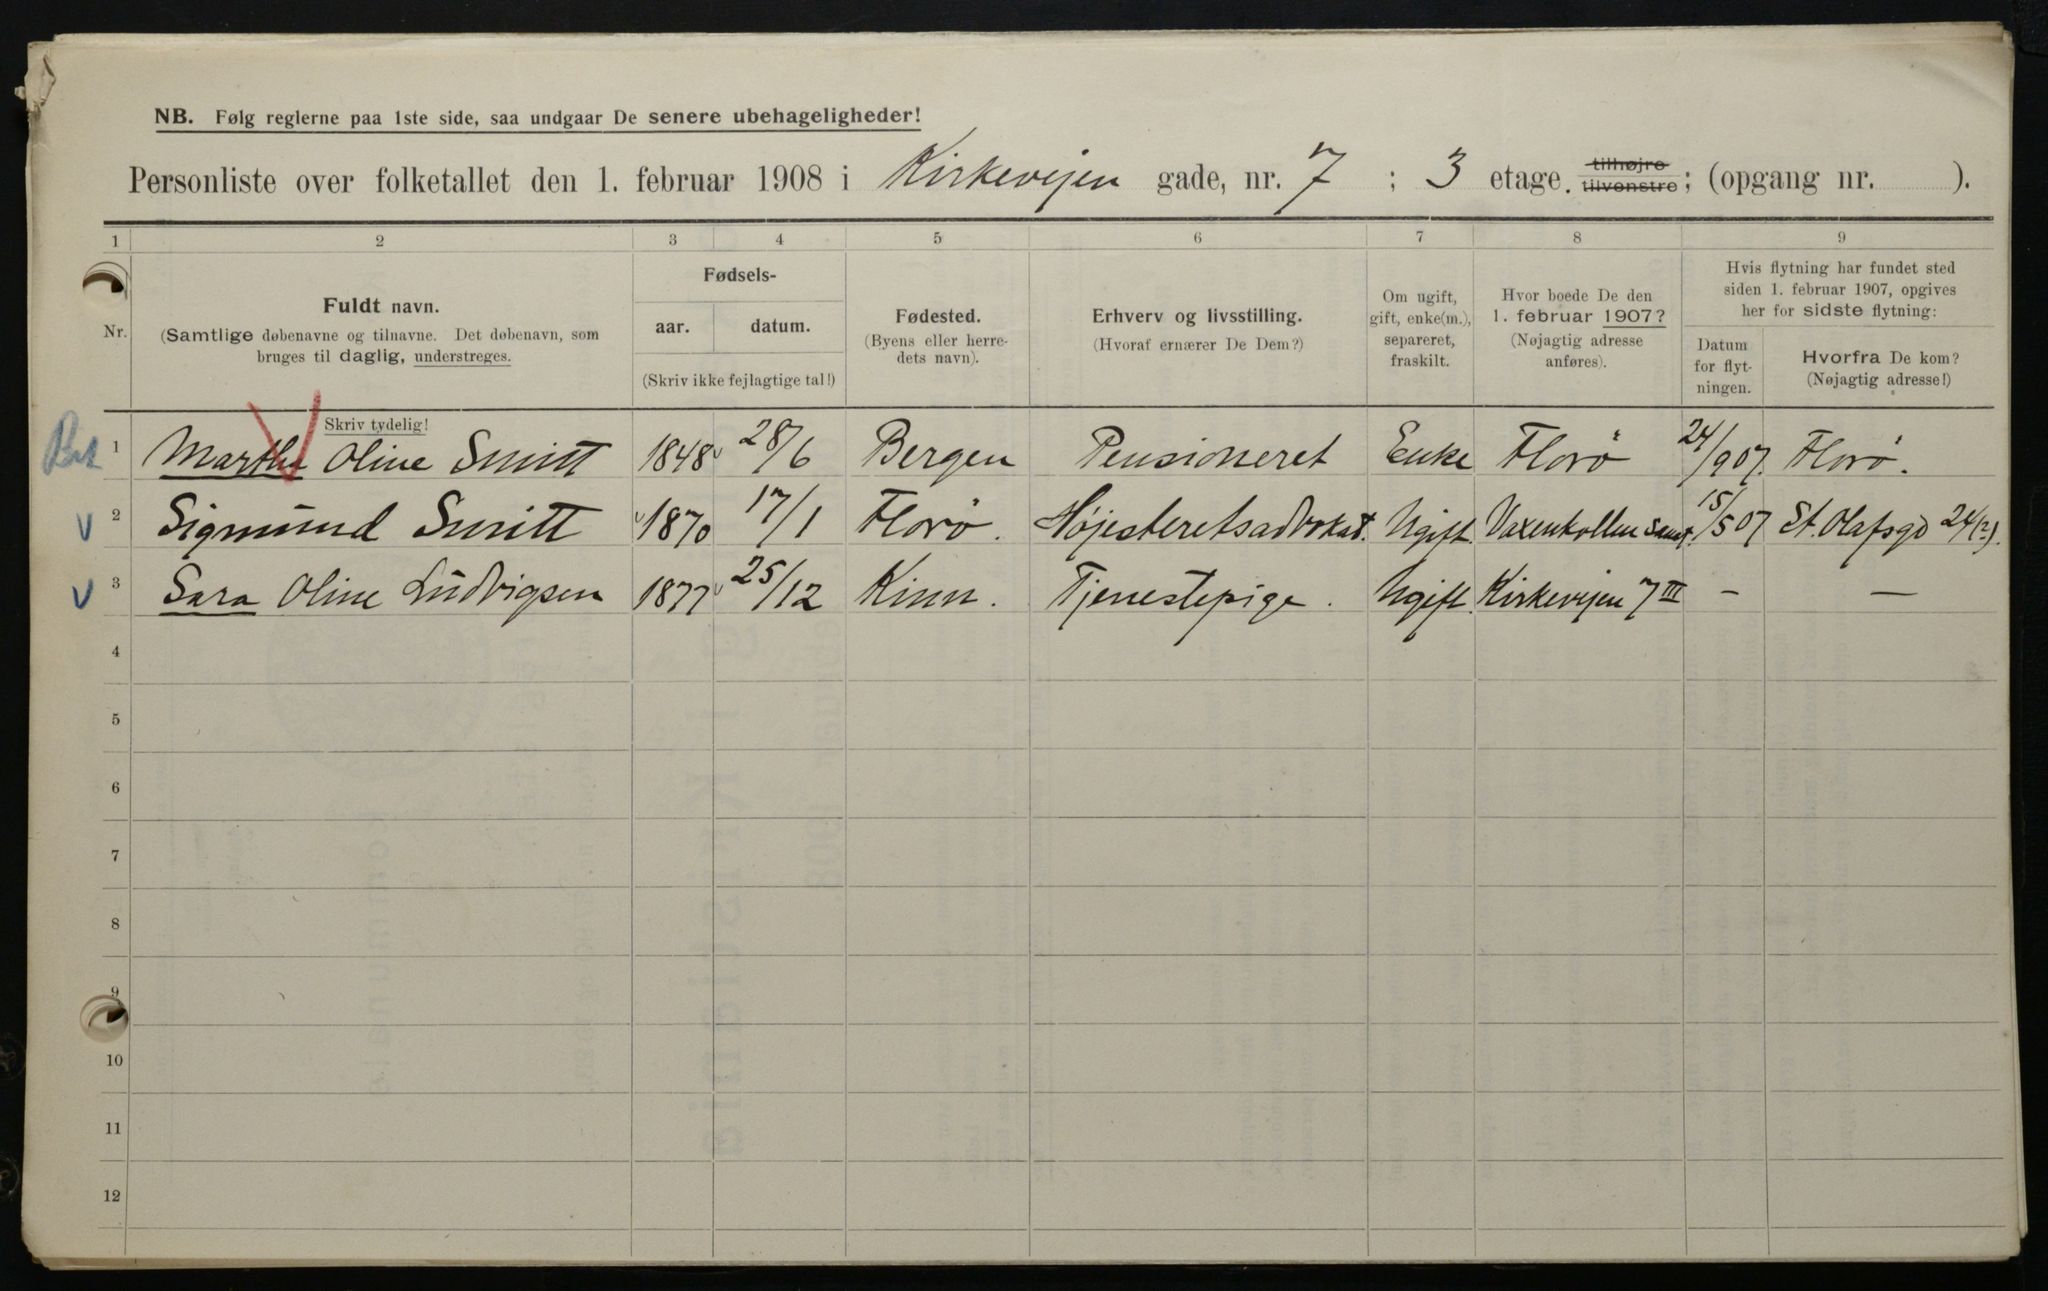 NB. Følg reglerne paa 1ste side, saa undgaar De senere ubehageligheder!
Personliste over folketallet den 1. februar 1908 i Kirkevejen gade, nr. 7 ; 3 etage. tilhøjre tilvenstre; (opgang nr. ).
1 2 3 4 5 6 7 8 9
Nr.
Fuldt navn.
(Samtlige døbenavne og tilnavne. Det døbenavn, som
bruges til daglig, understreges.
Fødsels-
aar. datum.
(Skriv ikke fejlagtige tal!)
Fødested.
(Byens eller herre-
dets navn).
Erhverv og livsstilling.
(Hvoraf ernærer De Dem?)
Om ugift,
gift, enke(m.),
separeret,
fraskilt.
Hvor boede De den
1. februar 1907?
(Nøjagtig adresse
anføres).
Hvis flytning har fundet sted
siden 1. februar 1907, opgives
her for sidste flytning:
Datum
for flyt-
ningen.
Hvorfra De kom?
(Nøjagtig adresse!)
Skriv tydelig!
1 Marthe Oline Smitt 1848 28/6 Bergen Pensioneret Enke Florö 24/9 07. Florö.
2 Sigmund Smitt 1870 17/1 Florö. Højesteretsadvokat. Ugift. Voxenkollen sanat. 15/5 07 St. Olafsgd 24(?).
3 Sara Oline Ludvigsen 1877 25/12 Kinn. Tjenestepige. Ugift. Kirkevejen 7 III - —
4
5
6
7
8
9
10
11
12